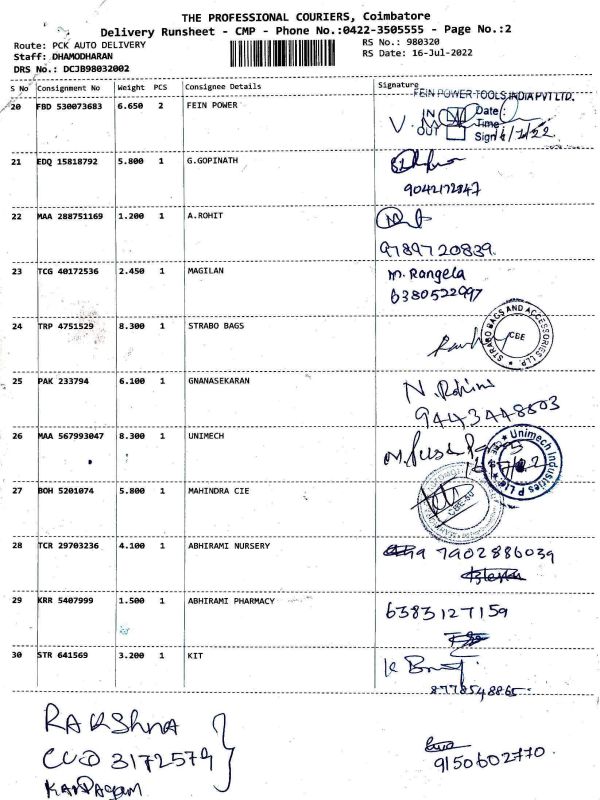 THE PROFESSIONAL COURIERS, Coimbatore
Delivery Runsheet - CMP - Phone No.:0422-3505555 - Page No.:2
Route: PCK AUTO DELIVERY
RS No.: 980320
Staff: DHAMODHARAN
RS Date: 16-Jul-2022
DRS No.: DCJB98032002
S No Consignment No Weight PCS Consignee Details Signature
20 FBD 530073683 6.650 2 FEIN POWER
FEIN POWER TOOLS INDIA PVT LTD.
IN Date:
Time:
OUT Sign
21 EDQ 15818792 5.800 1 G.GOPINATH
9042172847
22 MAA 288751169 1.200 1 A.ROHIT
9789720839
23 TCG 40172536 2.450 1 MAGILAN
m. Rangela
6380522997
24 TRP 4751529 8.300 1 STRABO BAGS
STRABO BAGS AND ACCESSORIES LLP. CBE
25 PAK 233794 6.100 1 GNANASEKARAN
N. Rohini
9443448803
26 MAA 567993047 8.300 1 UNIMECH
Unimech Industries P Ltd
27 BOH 5201074 5.800 1 MAHINDRA CIE
28 TCR 29703236 4.100 1 ABHIRAMI NURSERY
7902886039
29 KRR 5407999 1.500 1 ABHIRAMI PHARMACY
6383127159
30 STR 641569 3.200 1 KIT
8778548865
RAKShnA
CUO 3172579
KARPAgam
9150602770